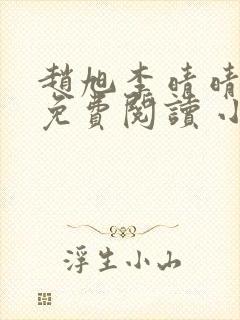 趙旭李晴晴
免費閱讀小
浮生小山